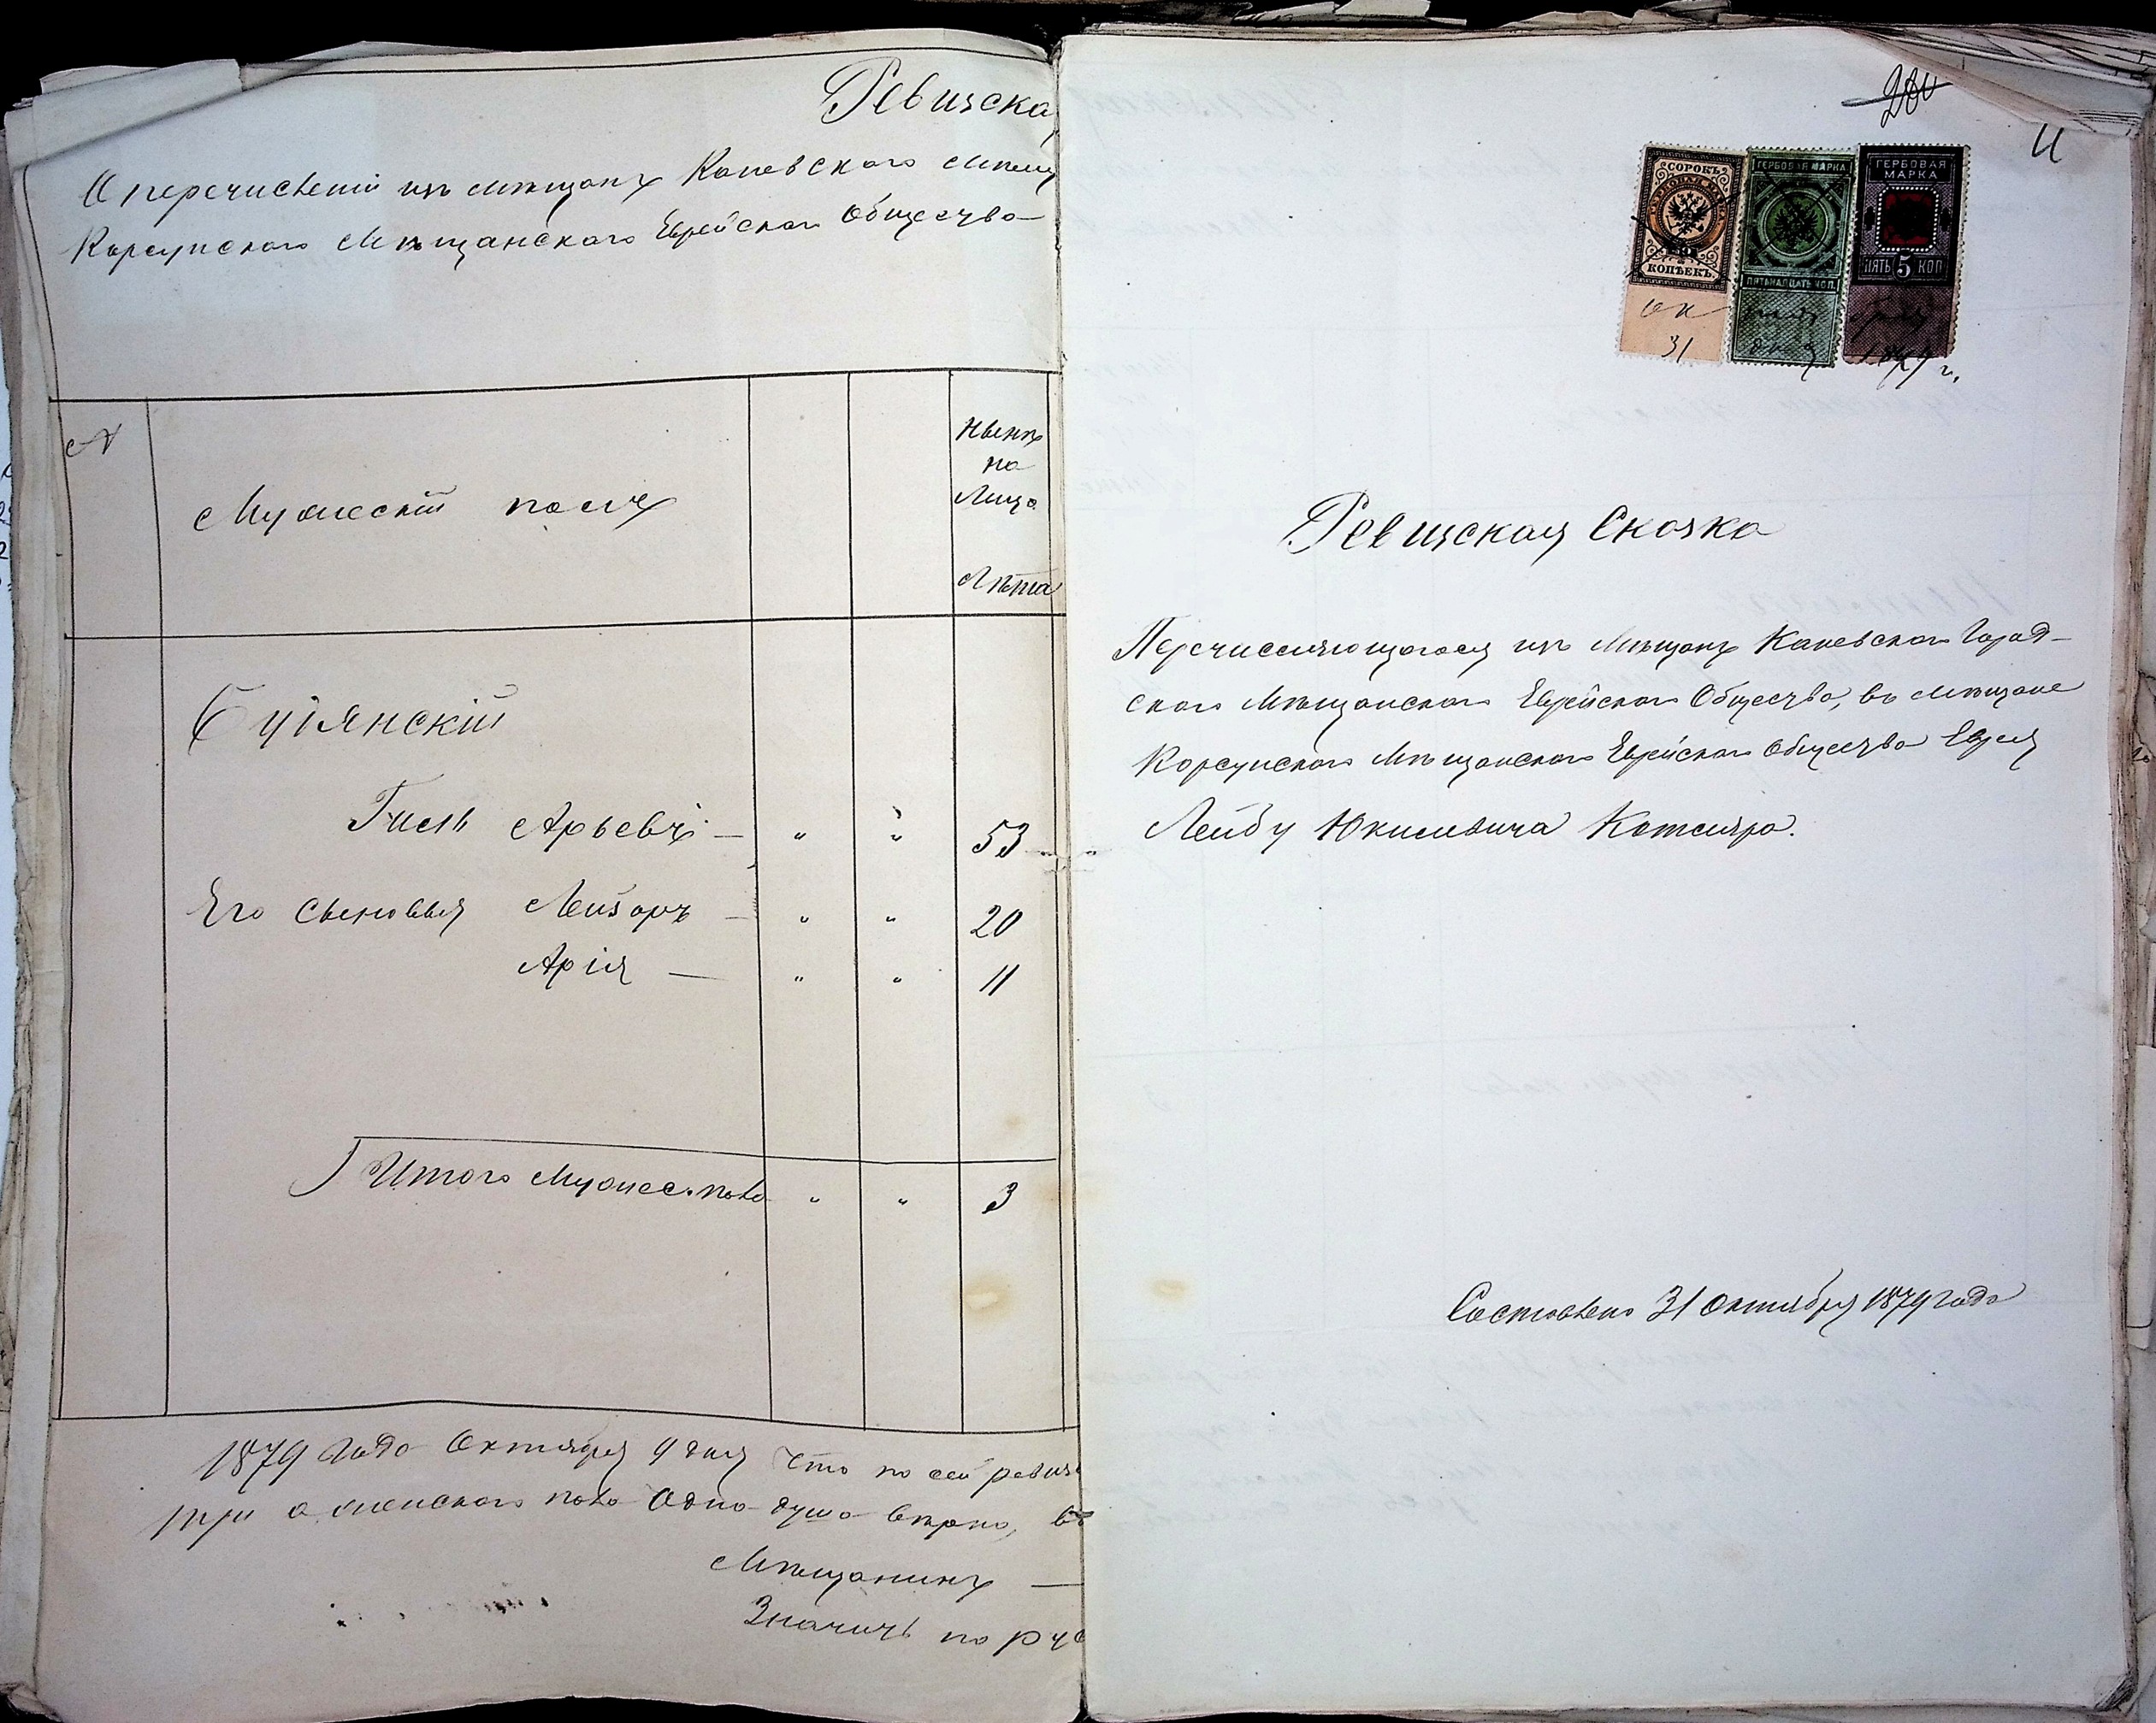 Ревизска
О перечислении изъ мѣщанъ Каневского Мѣщ
Корсунского Мѣщанского Еврейского Общества
№
Мужескій полъ
Нынѣ
на
Лицо
Лѣта
Буянскій
Гиель Арьевъ — " " 53
Его Сыновья Лейзоръ — " " 20
Арія — " " 11
Итого Мужес. пола " " 3
1879 Года Октября 9 дня Что по сей ревиз
три а женского пола Одна душа вѣрно, въ
Мѣщанинъ —
Значитъ по рус
280
11
СОРОКЪ
КОПѢЕКЪ.
ок
31
ГЕРБОВАЯ МАРКА
ПЯТЬНАДЦАТЬ КОП.
ГЕРБОВАЯ
МАРКА
ПЯТЬ 5 КОП
1879 г.
Ревизская Сказка
Перечисляющогося изъ Мѣщанъ Каневского Город-
ского Мѣщанского Еврейского Общества, въ мѣщане
Корсунского Мѣщанского Еврейского Общества Еврея
Лейбу Юкилевича Котляра.
Составлена 31 Октября 1879 года